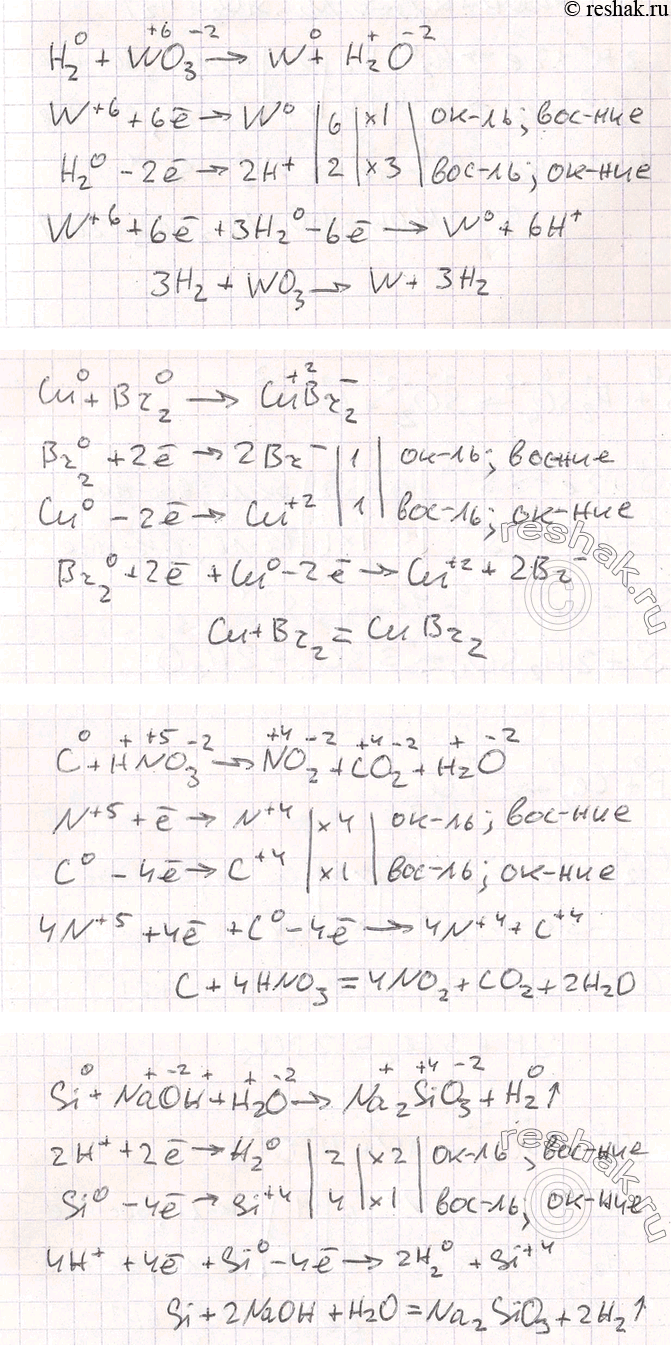 © reshak.ru
H₂⁰ + W⁺⁶O₃⁻² → W⁰ + H₂⁺O⁻²
W⁺⁶ + 6ē → W⁰ | 6 | ×1 | ок-ль; вос-ние
H₂⁰ - 2ē → 2H⁺ | 2 | ×3 | вос-ль; ок-ние
W⁺⁶ + 6ē + 3H₂⁰ - 6ē → W⁰ + 6H⁺
3H₂ + WO₃ → W + 3H₂
Cu⁰ + Br₂⁰ → Cu⁺²Br₂⁻
Br₂⁰ + 2ē → 2Br⁻ | 1 | ок-ль; вос-ние
Cu⁰ - 2ē → Cu⁺² | 1 | вос-ль; ок-ние
Br₂⁰ + 2ē + Cu⁰ - 2ē → Cu⁺² + 2Br⁻
Cu + Br₂ = CuBr₂
C⁰ + H⁺N⁺⁵O₃⁻² → N⁺⁴O₂⁻² + C⁺⁴O₂⁻² + H₂⁺O⁻²
N⁺⁵ + ē → N⁺⁴ | ×4 | ок-ль; вос-ние
C⁰ - 4ē → C⁺⁴ | ×1 | вос-ль; ок-ние
4N⁺⁵ + 4ē + C⁰ - 4ē → 4N⁺⁴ + C⁺⁴
C + 4HNO₃ = 4NO₂ + CO₂ + 2H₂O
Si⁰ + Na⁺O⁻²H⁺ + H₂⁺O⁻² → Na₂⁺Si⁺⁴O₃⁻² + H₂⁰↑
2H⁺ + 2ē → H₂⁰ | 2 | ×2 | ок-ль; вос-ние
Si⁰ - 4ē → Si⁺⁴ | 4 | ×1 | вос-ль; ок-ние
4H⁺ + 4ē + Si⁰ - 4ē → 2H₂⁰ + Si⁺⁴
Si + 2NaOH + H₂O = Na₂SiO₃ + 2H₂↑
reshak.ru
©
reshak.ru
©